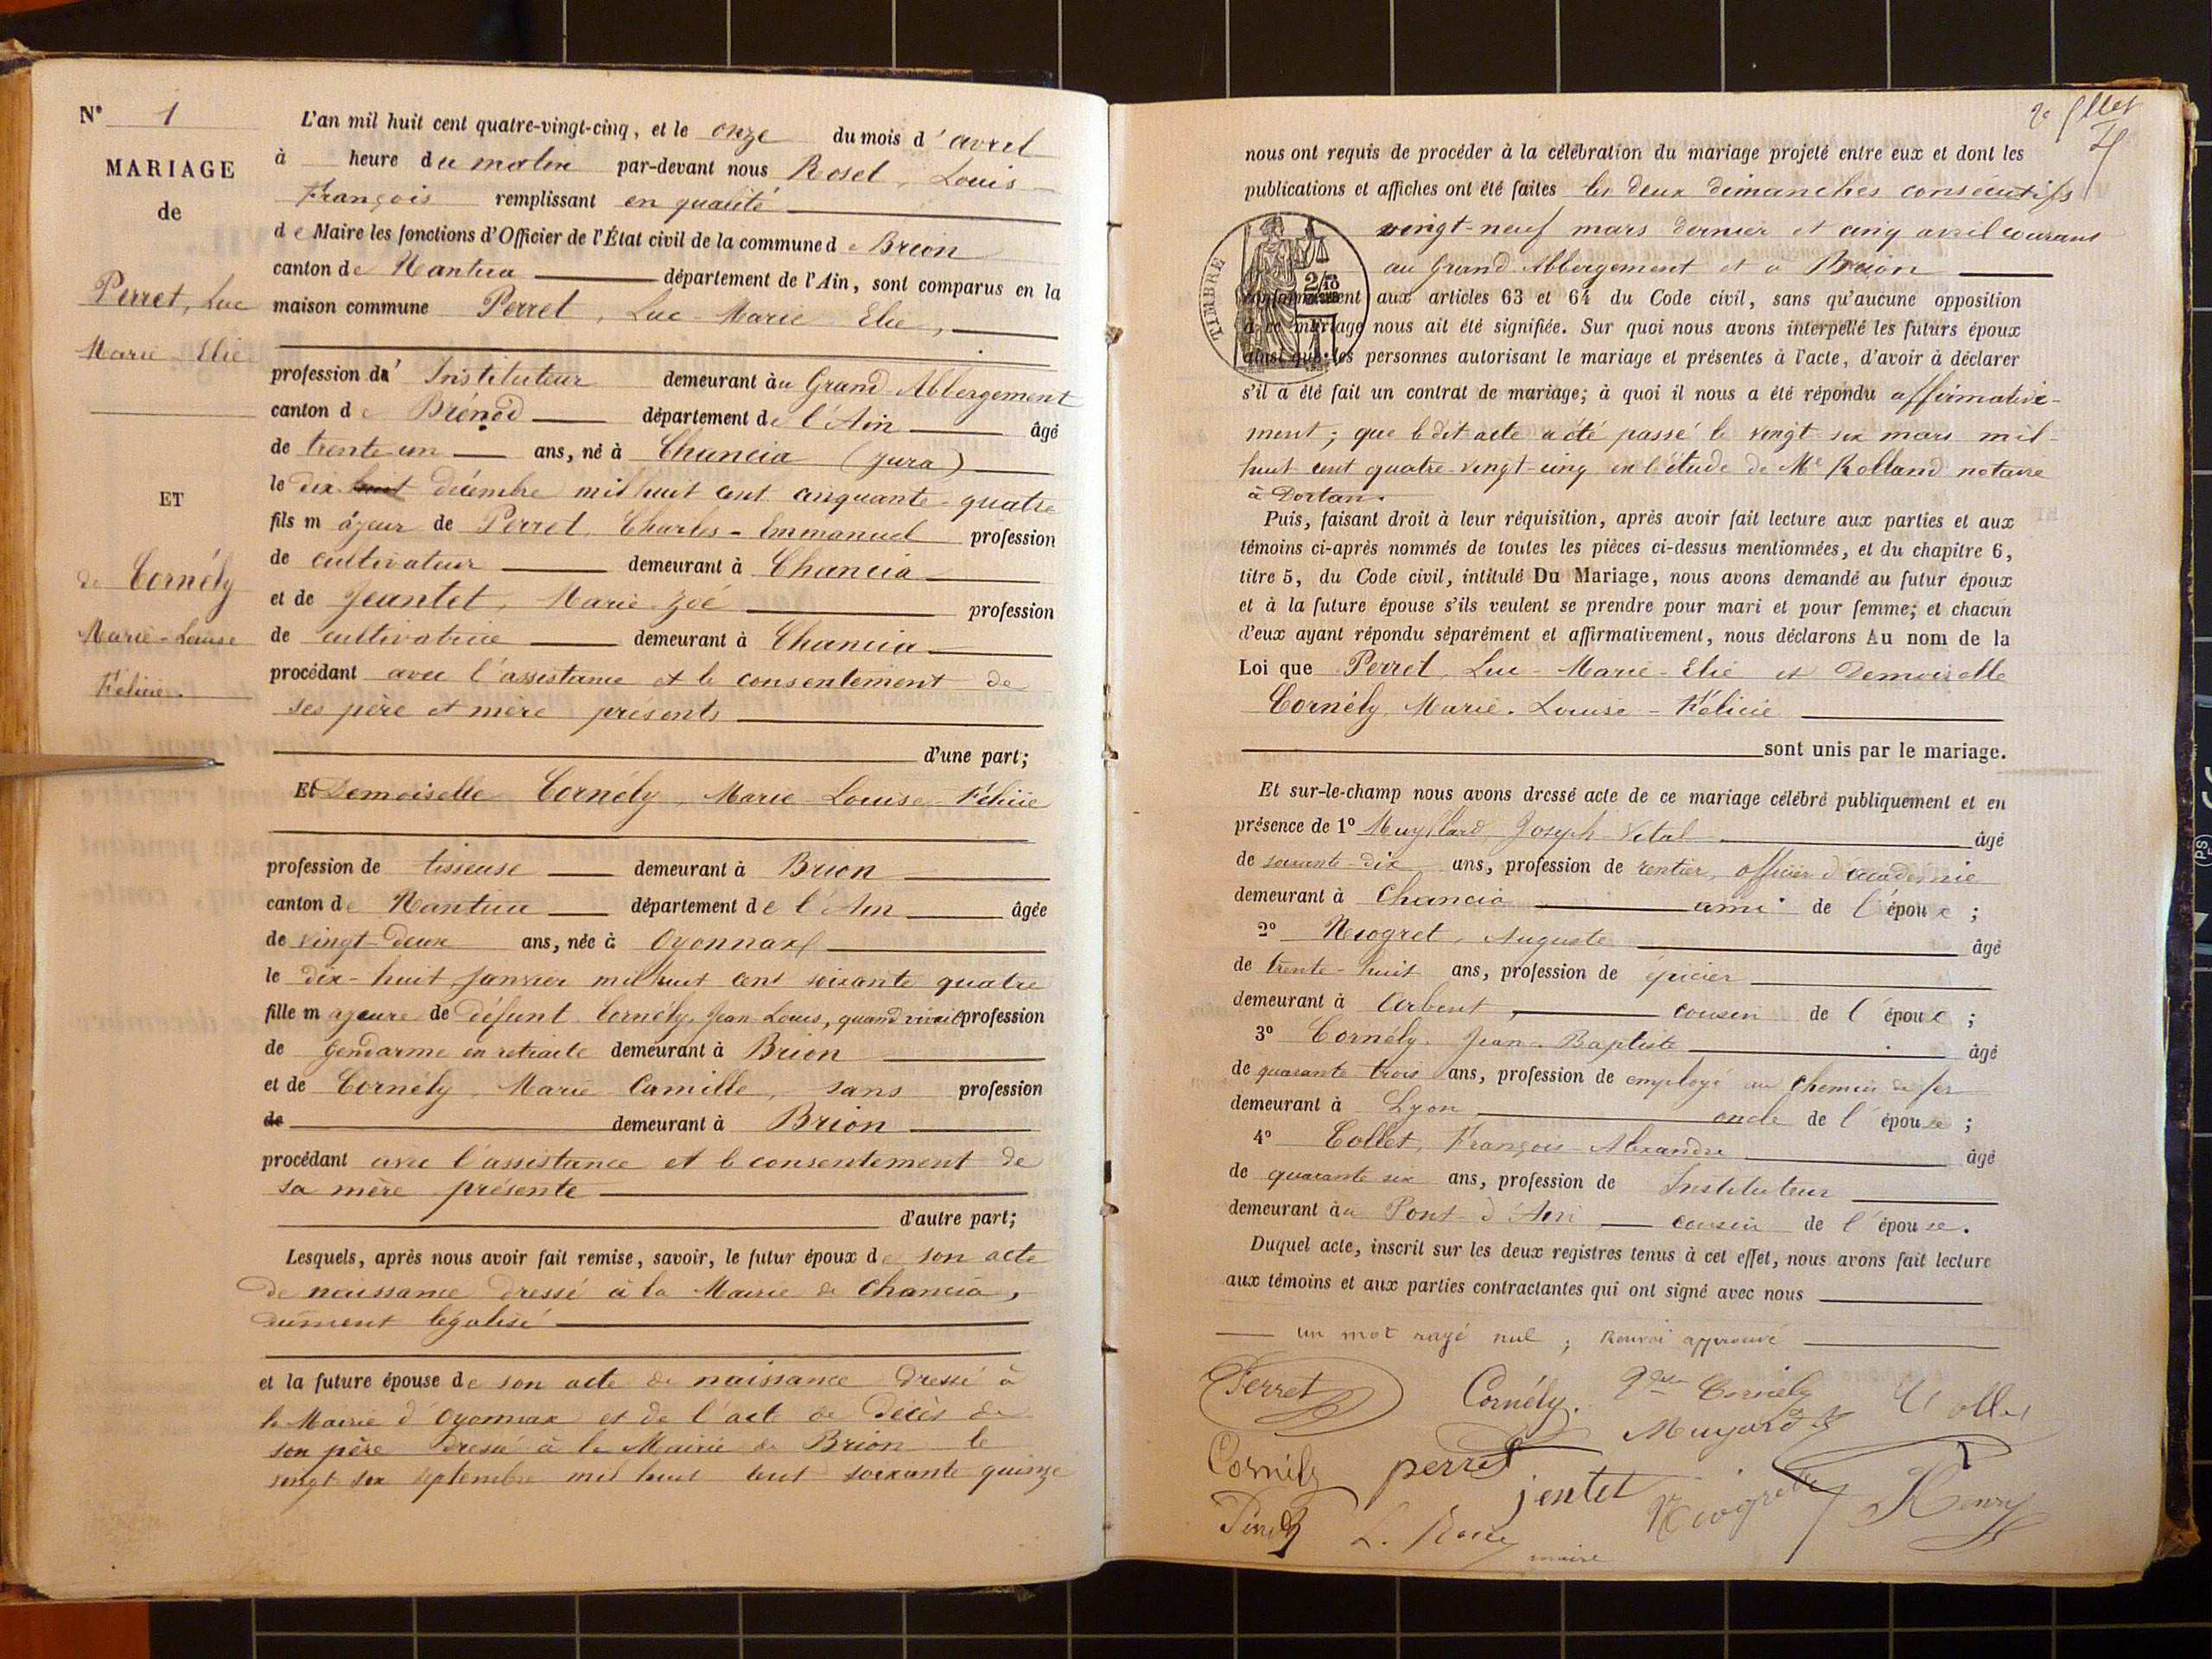 N° 1
MARIAGE
de
Perret, Luc
Marie Elie
ET
de Cornély
Marie-Louise
Félicie.
L'an mil huit cent quatre-vingt-cinq, et le onze du mois d'avril
à heure du matin par-devant nous Roset, Louis
François remplissant en qualité
de Maire les fonctions d'Officier de l'État civil de la commune de Brion
canton de Nantua département de l'Ain, sont comparus en la
maison commune Perret, Luc-Marie Elie,
profession d' Instituteur demeurant au Grand Abbergement
canton de Brénod département de l'Ain âgé
de trente un ans, né à Chancia (Jura)
le dix huit décembre mil huit cent cinquante-quatre
fils majeur de Perret, Charles-Emmanuel profession
de cultivateur demeurant à Chancia
et de Jeantet, Marie Zoé profession
de cultivatrice demeurant à Chancia
procédant avec l'assistance et le consentement de
ses père et mère présents
d'une part;
Et Demoiselle Cornély, Marie Louise Félicie
profession de tisseuse demeurant à Brion
canton de Nantua département de l'Ain âgée
de vingt-deux ans, née à Oyonnax
le dix-huit Janvier mil huit cent soixante quatre
fille majeure de défunt Cornély, Jean Louis, quand vivait profession
de gendarme en retraite demeurant à Brion
et de Cornély Marie Camille, sans profession
de demeurant à Brion
procédant avec l'assistance et le consentement de
sa mère présente
d'autre part;
Lesquels, après nous avoir fait remise, savoir, le futur époux de son acte
de naissance dressé à la Mairie de Chancia,
dûment légalisé
et la future épouse de son acte de naissance dressé à
la Mairie d'Oyonnax et de l'acte de décès de
son père dressé à la Mairie de Brion le
vingt six septembre mil huit cent soixante quinze
nous ont requis de procéder à la célébration du mariage projeté entre eux et dont les
publications et affiches ont été faites les deux dimanches consécutifs
vingt-neuf mars dernier et cinq avril courant
au Grand Abbergement et à Brion
TIMBRE
conformément aux articles 63 et 64 du Code civil, sans qu'aucune opposition
à ce mariage nous ait été signifiée. Sur quoi nous avons interpellé les futurs époux
ainsi que les personnes autorisant le mariage et présentes à l'acte, d'avoir à déclarer
s'il a été fait un contrat de mariage; à quoi il nous a été répondu affirmative-
ment; que le dit acte a été passé le vingt six mars mil-
huit cent quatre-vingt-cinq en l'étude de Me Rolland notaire
à Dortan.
Puis, faisant droit à leur réquisition, après avoir fait lecture aux parties et aux
témoins ci-après nommés de toutes les pièces ci-dessus mentionnées, et du chapitre 6,
titre 5, du Code civil, intitulé Du Mariage, nous avons demandé au futur époux
et à la future épouse s'ils veulent se prendre pour mari et pour femme; et chacun
d'eux ayant répondu séparément et affirmativement, nous déclarons Au nom de la
Loi que Perret, Luc-Marie-Elie et Demoiselle
Cornély, Marie-Louise-Félicie
sont unis par le mariage.
Et sur-le-champ nous avons dressé acte de ce mariage célébré publiquement et en
présence de 1° Joseph Vital âgé
de soixante-dix ans, profession de rentier, officier d'académie
demeurant à Chancia ami de l'époux;
2° Auguste âgé
de trente-huit ans, profession de épicier
demeurant à Arbent, cousin de l'époux;
3° Cornély, Jean-Baptiste âgé
de quarante trois ans, profession de employé au chemin de fer
demeurant à Lyon oncle de l'épouse;
4° Collet, François Alexandre âgé
de quarante six ans, profession de Instituteur
demeurant au Pont d'Ain cousin de l'épouse.
Duquel acte, inscrit sur les deux registres tenus à cet effet, nous avons fait lecture
aux témoins et aux parties contractantes qui ont signé avec nous
un mot rayé nul; Renvoi approuvé
Perret Cornély. Cornély Collet
Muyard
Cornély perret
jentet
maire